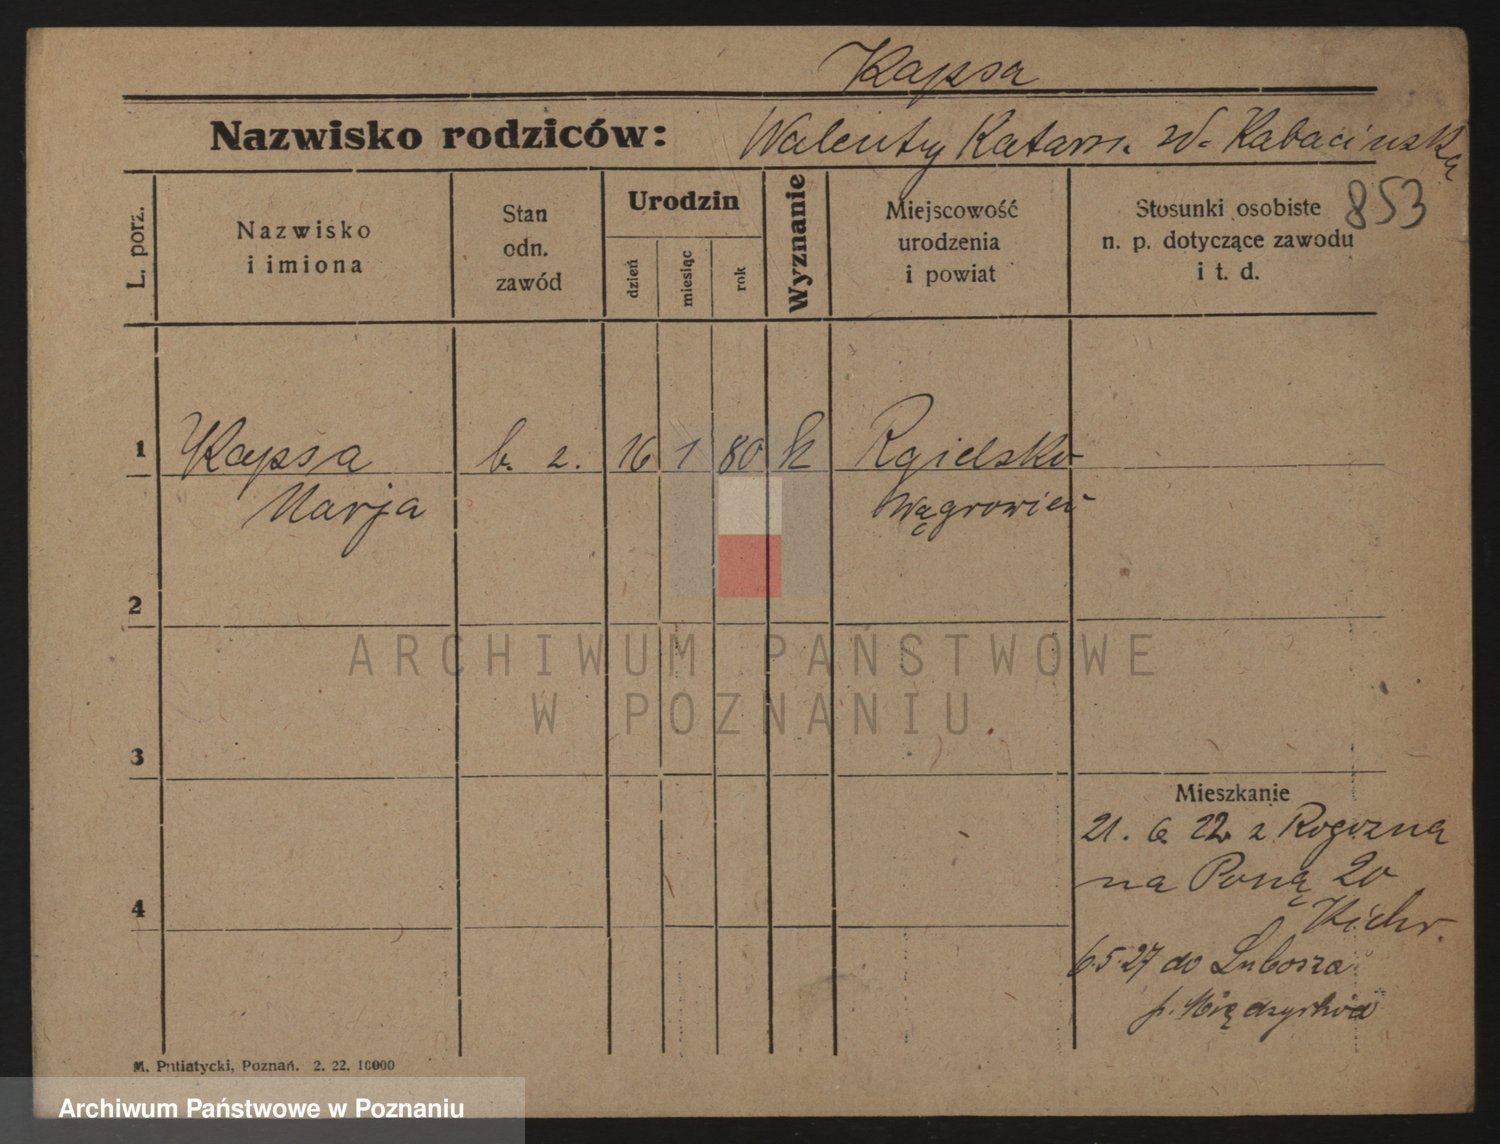 Kapsa
Nazwisko rodziców: Walenty Katarz. zd. Kabacinska
853
L. porz.
Nazwisko
i imiona
Stan
odn.
zawód
Urodzin
dzień
miesiąc
rok
Wyznanie
Miejscowość
urodzenia
i powiat
Stosunki osobiste
n. p. dotyczące zawodu
i t. d.
1 Kapsa b. z. 16 1 80 k Rgielsko
Marja Wągrowiec
2
3
4
Mieszkanie
21. 6. 22. z Rogozna
na 20
6.5.27 do Lubosza
p. Międzychód
M. Putiatycki, Poznań. 2. 22. 10000
ARCHIWUM PAŃSTWOWE
W POZNANIU
Archiwum Państwowe w Poznaniu